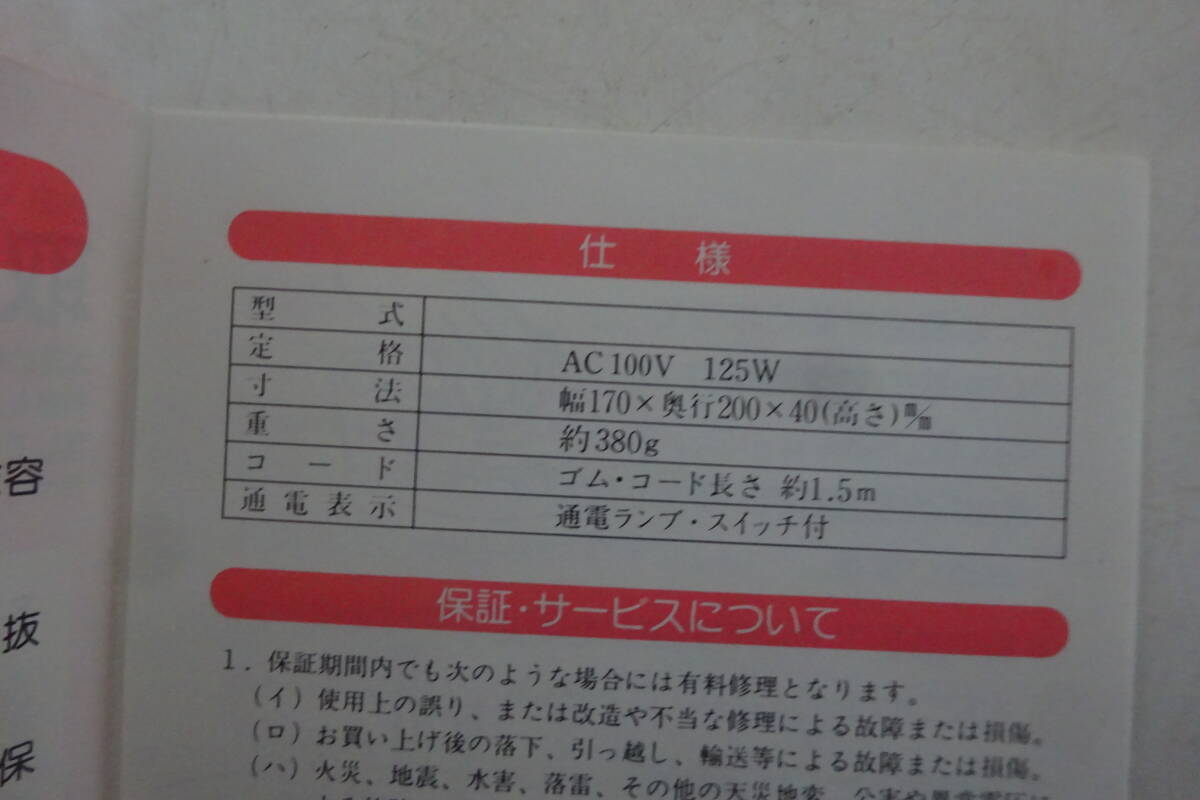 仕 様
型 式
定 格 AC100V 125W
寸 法 幅170×奥行200×40(高さ)m/m
重 さ 約380g
コ ー ド ゴム・コード長さ 約1.5m
通 電 表 示 通電ランプ・スイッチ付
保証・サービスについて
1. 保証期間内でも次のような場合には有料修理となります。
(イ) 使用上の誤り、または改造や不当な修理による故障または損傷。
(ロ) お買い上げ後の落下、引っ越し、輸送等による故障または損傷。
(ハ) 火災、地震、水害、落雷、その他の天災地変、公害や異常電圧に
容
抜
保